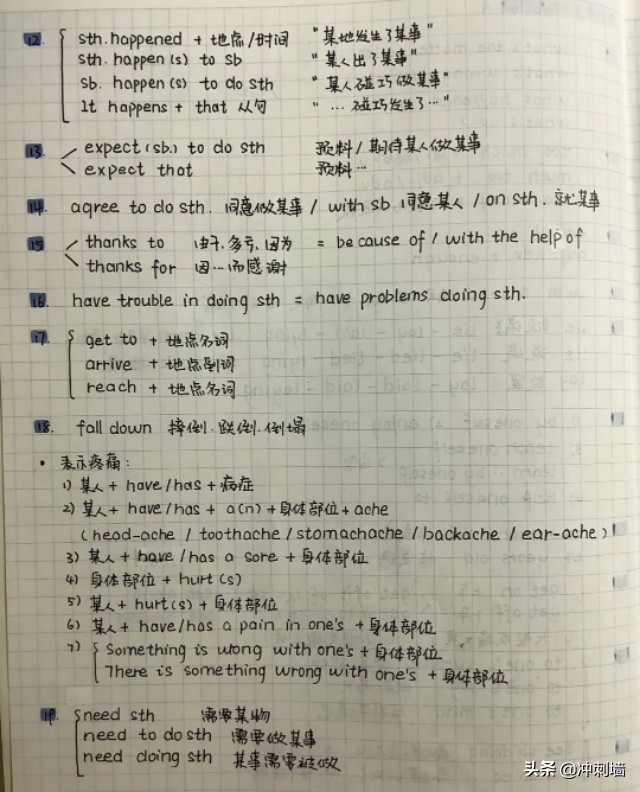 12. sth. happened + 地点/时间 "某地发生了某事"
sth. happen(s) to sb "某人出了某事"
sb. happen(s) to do sth "某人碰巧做某事"
It happens + that 从句 "… 碰巧发生了…"
13. expect (sb.) to do sth 预料/期待某人做某事
expect that 预料…
14. agree to do sth. 同意做某事 / with sb 同意某人 / on sth. 就某事
15 thanks to 由于.多亏.因为 = because of / with the help of
thanks for 因…而感谢
16. have trouble in doing sth = have problems doing sth.
17. get to + 地点名词
arrive + 地点副词
reach + 地点名词
18. fall down 摔倒.跌倒.倒塌
• 表示疼痛:
1) 某人 + have/has + 病症
2) 某人 + have/has + a(n) + 身体部位 + ache
(head-ache / toothache / stomachache / backache / ear-ache)
3) 某人 + have/has a sore + 身体部位
4) 身体部位 + hurt(s)
5) 某人 + hurt(s) + 身体部位
6) 某人 + have/has a pain in one's + 身体部位
7) Something is wrong with one's + 身体部位
There is something wrong with one's + 身体部位
19. need sth 需要某物
need to do sth 需要做某事
need doing sth 某事需要被做
头条 @冲刺墙